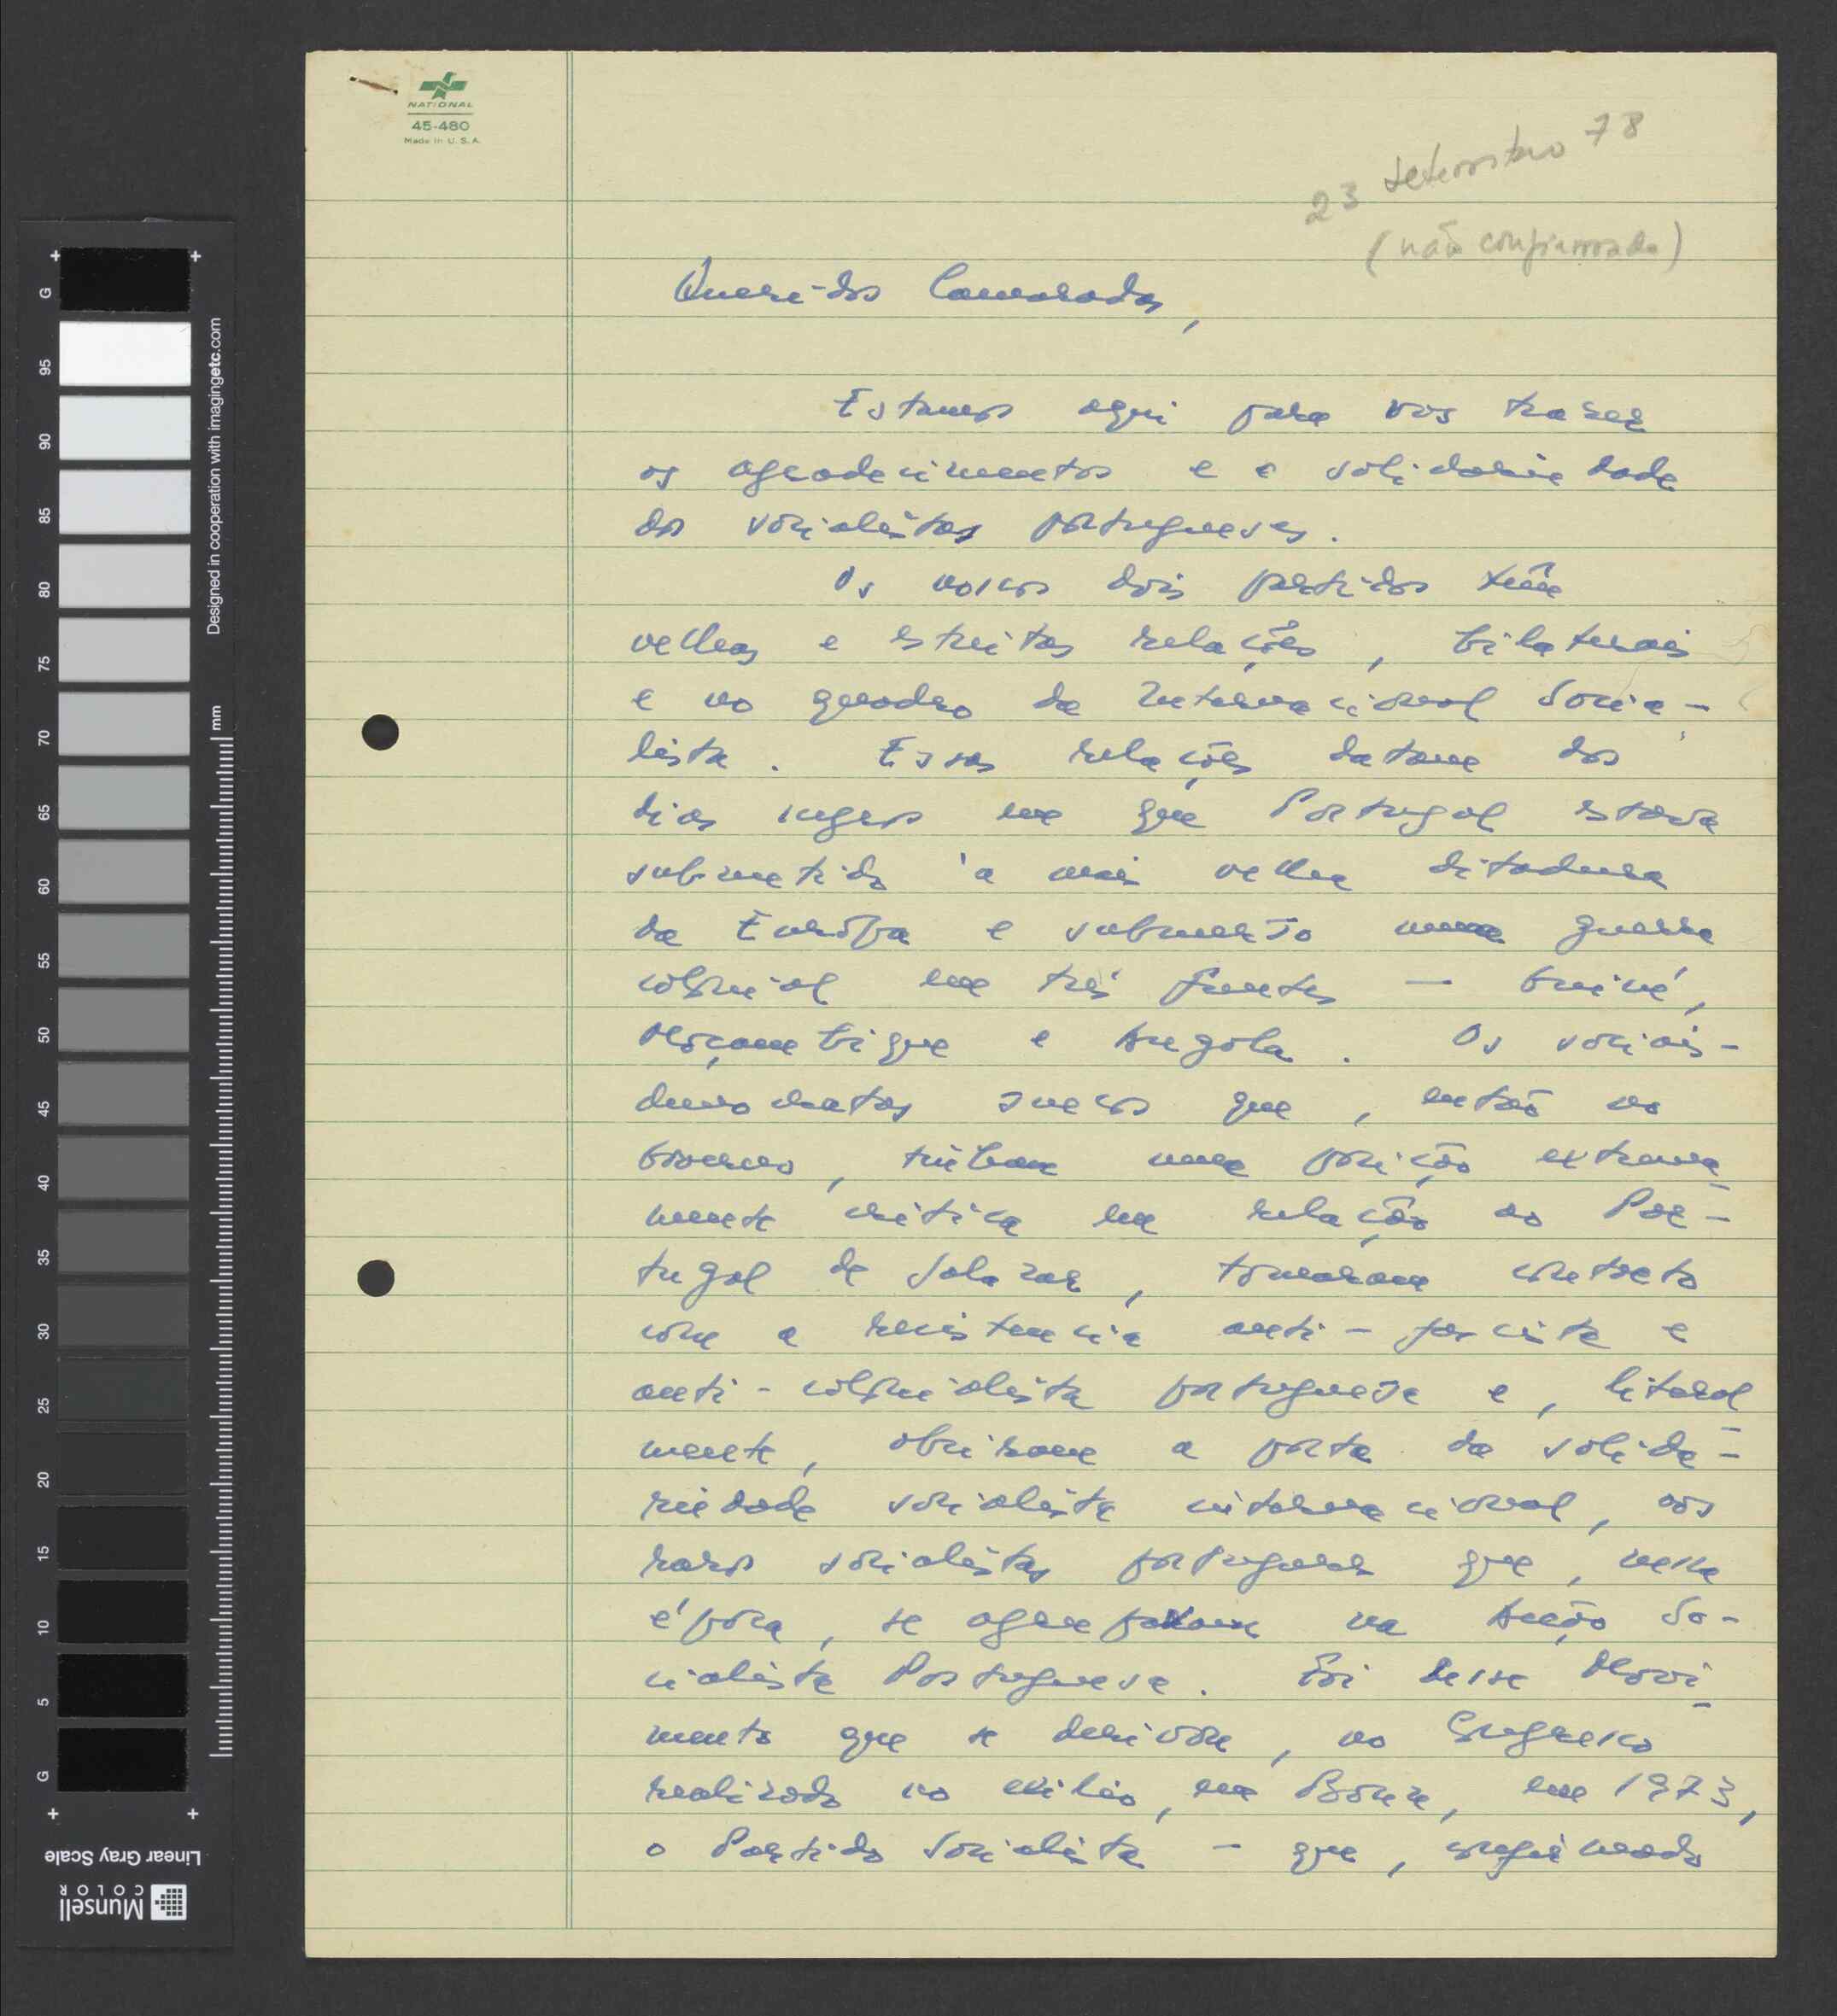 NATIONAL
45-480
Made in U.S.A.
23 setembro 78
(não confirmada)
Queridos Camaradas,
Estamos aqui para vos trazer
os agradecimentos e a solidariedade
dos socialistas portugueses.
Os nossos dois partidos têm
velhas e estreitas relações, bilaterais
e no quadro da Internacional Socia-
lista. Essas relações datam dos
dias negros em que Portugal estava
submetido à mais velha ditadura
da Európa e submerso numa guerra
colonial em três frentes — Guiné,
Moçambique e Angola. Os sociais-
democratas suecos que, então no
Governo, tinham uma posição extrema-
mente crítica em relação ao Por-
tugal de Salazar, tomaram contacto
com a resistencia anti-fascista e
anti-colonialista portuguesa e, literal-
mente, abriram a porta da solida-
riedade socialista internacional, aos
raros socialistas portugueses que, nessa
época, se agrupavam na Acção So-
cialista Portuguesa. Foi desse Movi-
mento que se derivou, no Congresso
realizado no exílio, em Bona, em 1973,
o Partido Socialista - que, confirmado
Designed in cooperation with imagingetc.com
mm
G
95
90
85
80
75
70
65
60
55
50
45
40
35
30
25
20
15
10
5
G
Linear Gray Scale
Munsell
COLOR